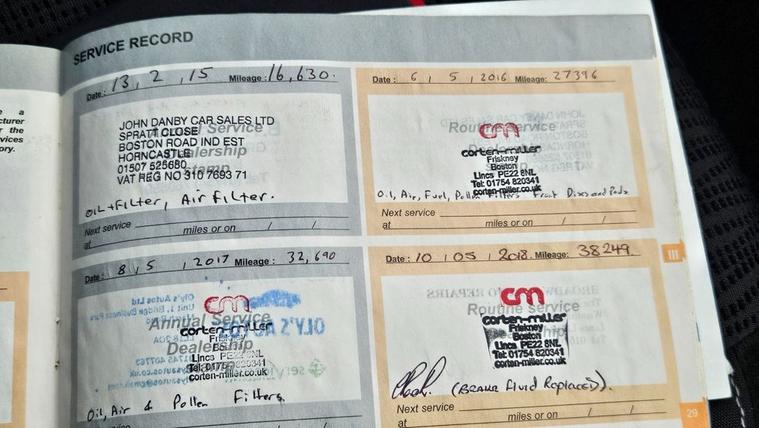 SERVICE RECORD
Date: 13, 2, 15 Mileage: 16,630.
JOHN DANBY CAR SALES LTD
SPRATT CLOSE
BOSTON ROAD IND EST
HORNCASTLE
01507 525680
VAT REG NO 310 7693 71
Oil + Filter, Air Filter.
Next service
at miles or on / /
Date: 6 / 5 / 2016 Mileage: 27396
Routine Service
cm
corten-miller
Friskney
Boston
Lincs PE22 8NL
Tel: 01754 820341
corten-miller.co.uk
Oil, Air, Fuel, Pollen Filters Front Discs and Pads
Next service
at miles or on / /
Date: 8, 5, 2017 Mileage: 32,690
cm
Annual Service
corten-miller
Dealership
Lincs PE22 8NL
Tel: 01754 820341
corten-miller.co.uk
Oil, Air & Pollen Filters
Date: 10 / 05 / 2018. Mileage: 38249
cm
Routine Service
corten-miller
Friskney
Boston
Lincs PE22 8NL
Tel: 01754 820341
corten-miller.co.uk
(Brake Fluid Replaced).
Next service
at miles or on / /
III
29